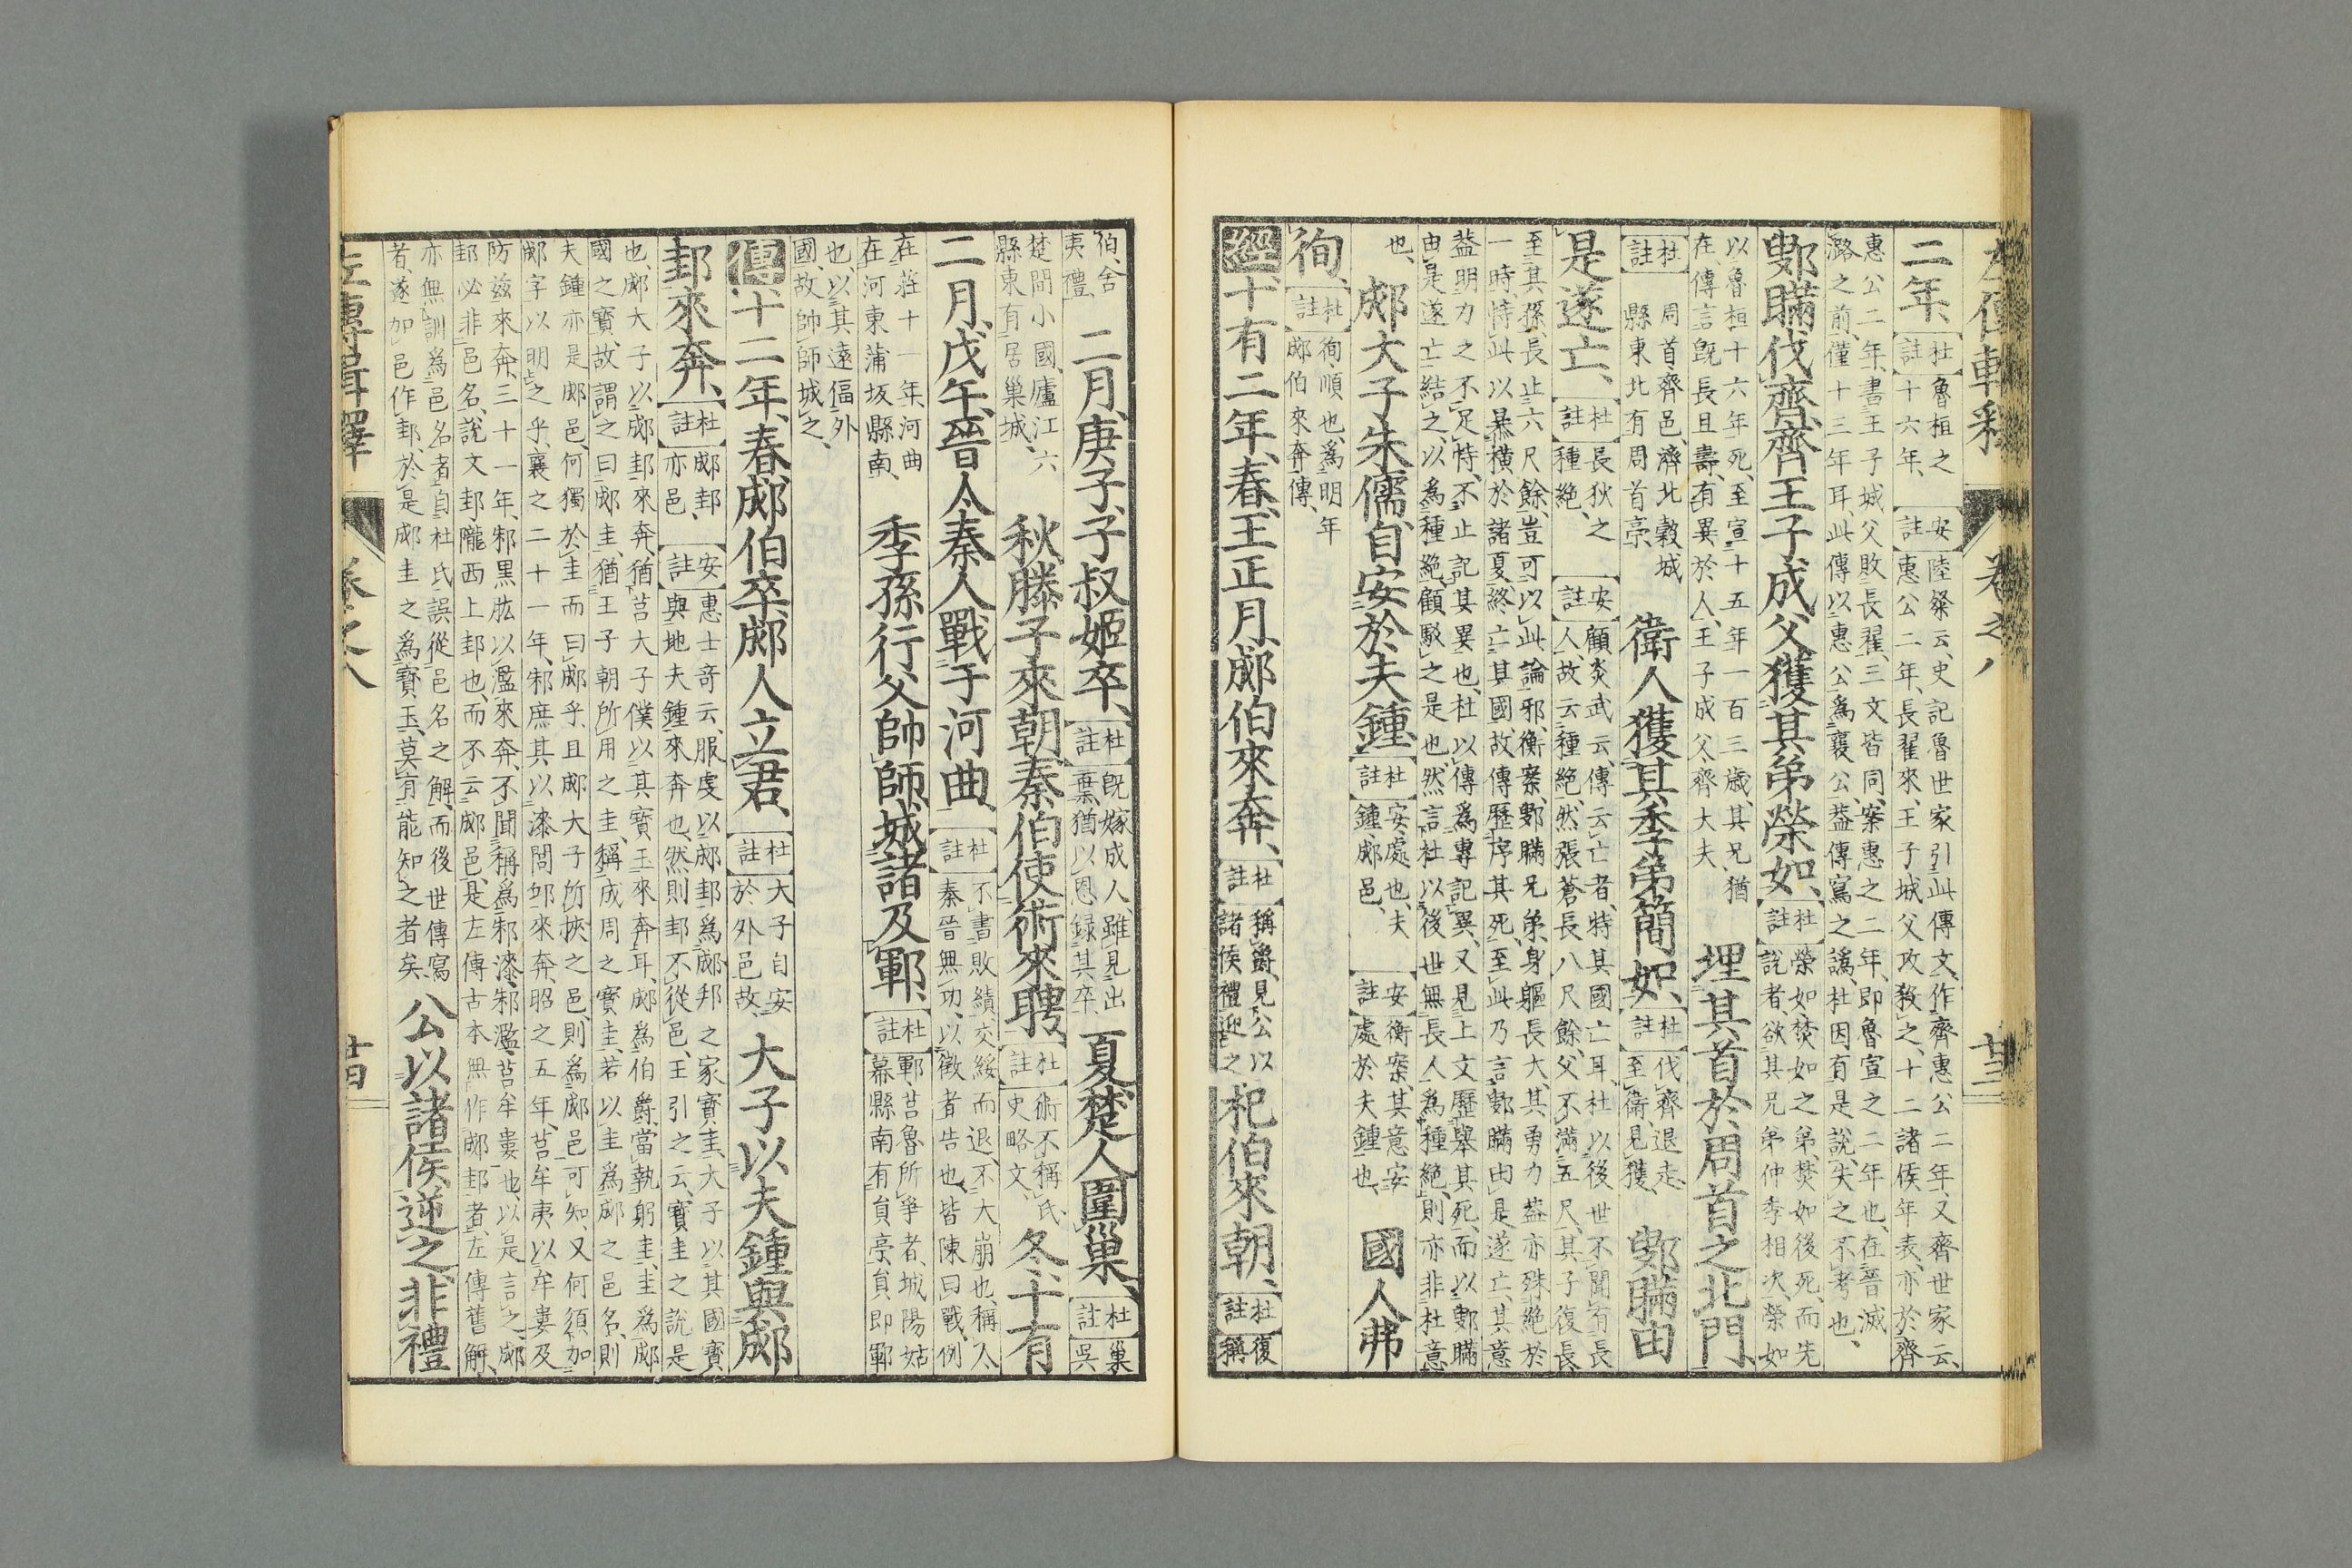 左傳輯釋 卷之八 廿三
二年、杜註魯桓之十六年、安註陸粲云、史記魯世家引此傳文、作齊惠公二年、又齊世家云、
惠公二年、長翟來、王子城父攻殺之、十二諸侯年表、亦於齊
惠公二年、書王子城父敗長翟、三文皆同、案惠之二年、即魯宣之二年也、在晉滅
潞之前、僅十三年耳、此傳以惠公爲襄公、蓋傳寫之譌、杜因有是說、失之不考也、
鄋瞞伐齊、齊王子成父獲其弟榮如、杜註榮如焚如之弟、焚如後死、而先
說者、欲其兄弟仲季相次、榮如
以魯桓十六年死、至宣十五年一百三歲、其兄猶
在、傳言既長且壽、有異於人、王子成父、齊大夫、埋其首於周首之北門、
杜註周首齊邑、濟北穀城
縣東北有周首亭、衛人獲其季弟簡如、杜註伐齊退走、
至衛見獲、鄋瞞由
是遂亡、杜註長狄之
種絕、安註顧炎武云、傳云亡者、特其國亡耳、杜以後世不聞有長
人、故云種絕、然張蒼長八尺餘、父不滿五尺、其子復長、
至其孫、長止六尺餘、豈可以此論邪、衡案、鄋瞞兄弟、身軀長大、其勇力蓋亦殊絕於
一時、恃此以暴橫於諸夏、終亡其國、故傳歷序其死、至此乃言鄋瞞由是遂亡、其意
蓋明力之不足恃、不止記其異也、杜以傳爲專記異、又見上文歷舉其死、而以鄋瞞
由是遂亡結之、以爲種絕、顧駁之是也、然言杜以後世無長人爲種絕、則亦非杜意
也、郕大子朱儒自安於夫鍾、杜註安、處也、夫
鍾、郕邑、安註衡案、其意安
處於夫鍾也、國人弗
徇、杜註徇、順也、爲明年
郕伯來奔傳、
經十有二年、春、王正月、郕伯來奔、杜註稱爵、見公以
諸侯禮迎之、杞伯來朝、杜註復
稱
伯、舍
夷禮、二月、庚子、子叔姬卒、杜註既嫁成人、雖見出
棄、猶以恩錄其卒、夏、楚人圍巢、杜註巢、吳
楚間小國、廬江六
縣東有居巢城、秋、滕子來朝、秦伯使術來聘、杜註術不稱氏、
史略文、冬、十有
二月、戊午、晉人秦人戰于河曲、杜註不書敗績、交綏而退、不大崩也、稱人、
秦晉無功、以微者告也、皆陳曰戰、例
在莊十一年、河曲
在河東蒲坂縣南、季孫行父帥師城諸及鄆、杜註鄆、莒魯所爭者、城陽姑
幕縣南有員亭、員即鄆
也、以其遠偪外
國、故帥師城之、
傳十二年、春、郕伯卒、郕人立君、杜註大子自安
於外邑故、大子以夫鍾與郕
邽來奔、杜註郕邽
亦邑、安註惠士奇云、服虔以郕邽爲郕邦之家寶圭、大子以其國寶、
與地夫鍾來奔也、然則邽不從邑、王引之云、寶圭之說是
也、郕大子以郕邽來奔、猶莒大子僕以其寶玉來奔耳、郕爲伯爵、當執躬圭、圭爲郕
國之寶、故謂之曰郕圭、猶王子朝所用之圭、稱成周之寶圭、若以圭爲郕之邑名、則
夫鍾亦是郕邑、何獨於圭而曰郕乎、且郕大子所挾之邑、則爲郕邑可知、又何須加
郕字以明之乎、襄之二十一年、邾庶其以漆閭邱來奔、昭之五年、莒牟夷以牟婁及
防茲來奔、三十一年、邾黑肱以濫來奔、不聞稱爲邾漆、邾濫、莒牟婁也、以是言之、郕
邽必非邑名、說文邽、隴西上邽也、而不云郕邑、是左傳古本無作郕邽者、左傳舊解、
亦無訓爲邑名者、自杜氏誤從邑名之解、而後世傳寫
者、遂加邑作邽、於是郕圭之爲寶玉、莫有能知之者矣、公以諸侯逆之、非禮
左傳輯釋 卷之八 廿四